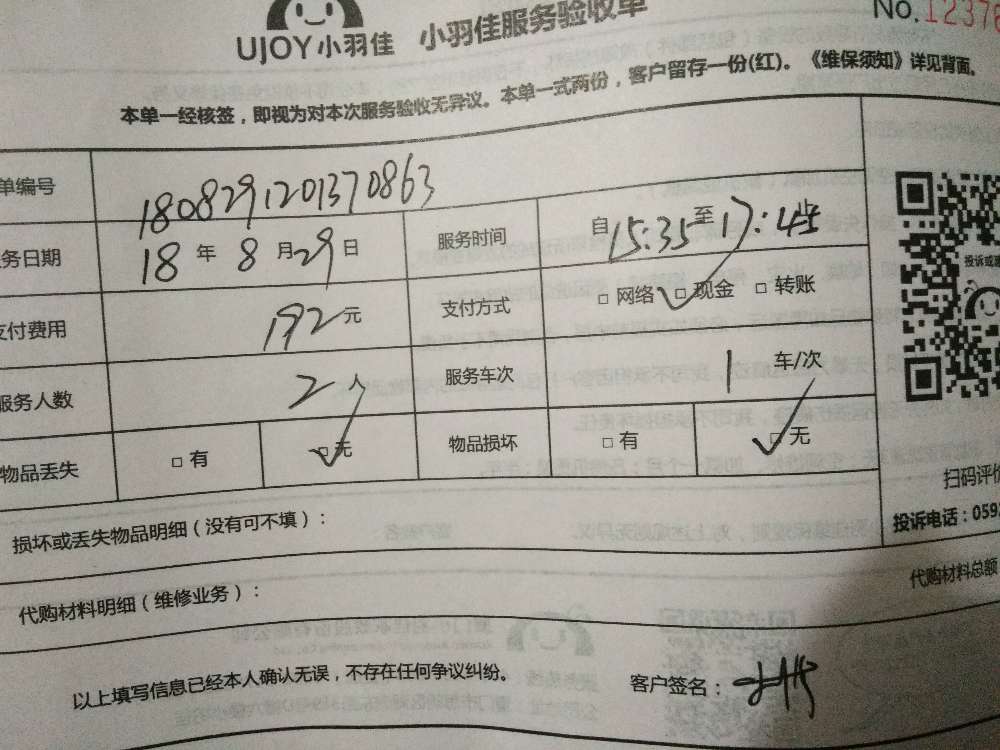 UJOY小羽佳 小羽佳服务验收单 No.12376
本单一经核签，即视为对本次服务验收无异议。本单一式两份，客户留存一份(红)。《维保须知》详见背面。
单编号 1808291201370863
务日期 18年8月29日 服务时间 自15:35至17:45
支付费用 192元 支付方式 □网络 □现金 □转账
服务人数 2人 服务车次 1车/次
物品丢失 □有 □无 物品损坏 □有 □无
投诉或
扫码评价
投诉电话：059
损坏或丢失物品明细（没有可不填）：
代购材料明细（维修业务）： 代购材料总额
以上填写信息已经本人确认无误，不存在任何争议纠纷。 客户签名：